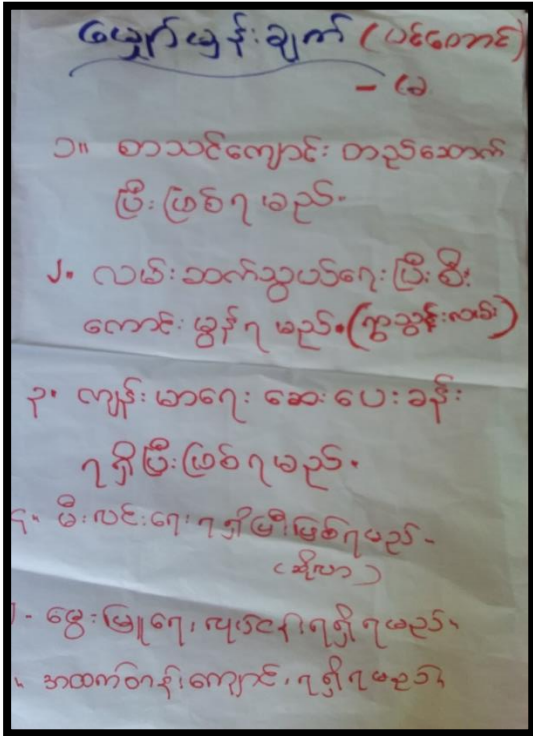 မျှော်မှန်းချက် (ပင်တောင်)
- မေ
၁။ စာသင်ကျောင်း တည်ဆောက်
ပြီးဖြစ်ရမည်-
၂. လမ်းဆက်သွယ်ရေး ပြီးစီး
ကောင်းမွန်ရမည်. (ရွာသွန်းလမ်း)
၃. ကျန်းမာရေး ဆေးပေးခန်း
ရရှိပြီးဖြစ်ရမည်.
၄. မီးလင်းရေး ရရှိပြီးဖြစ်ရမည်-
(ဆိုလာ)
- မွေးမြူရေး ရရှိရမည်
အထက်တန်းကျောင်း ရရှိရမည်